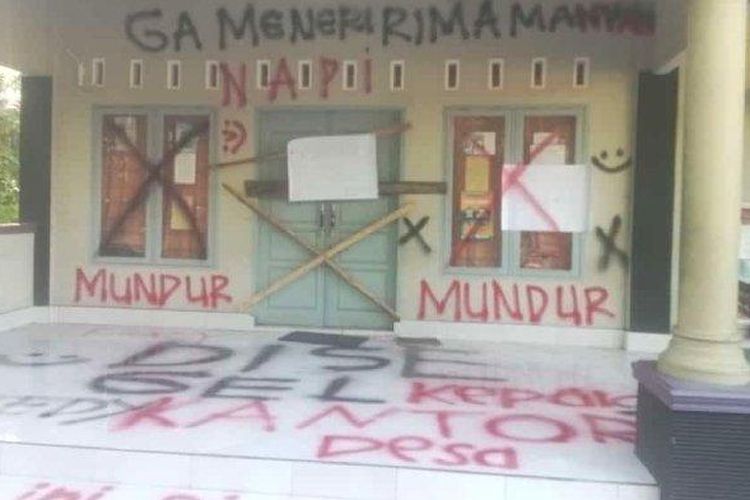 GA MENERIMA MANTAN
NAPI
MUNDUR
MUNDUR
DISE
GEL KEPAK
KANTOR
Desa
ini